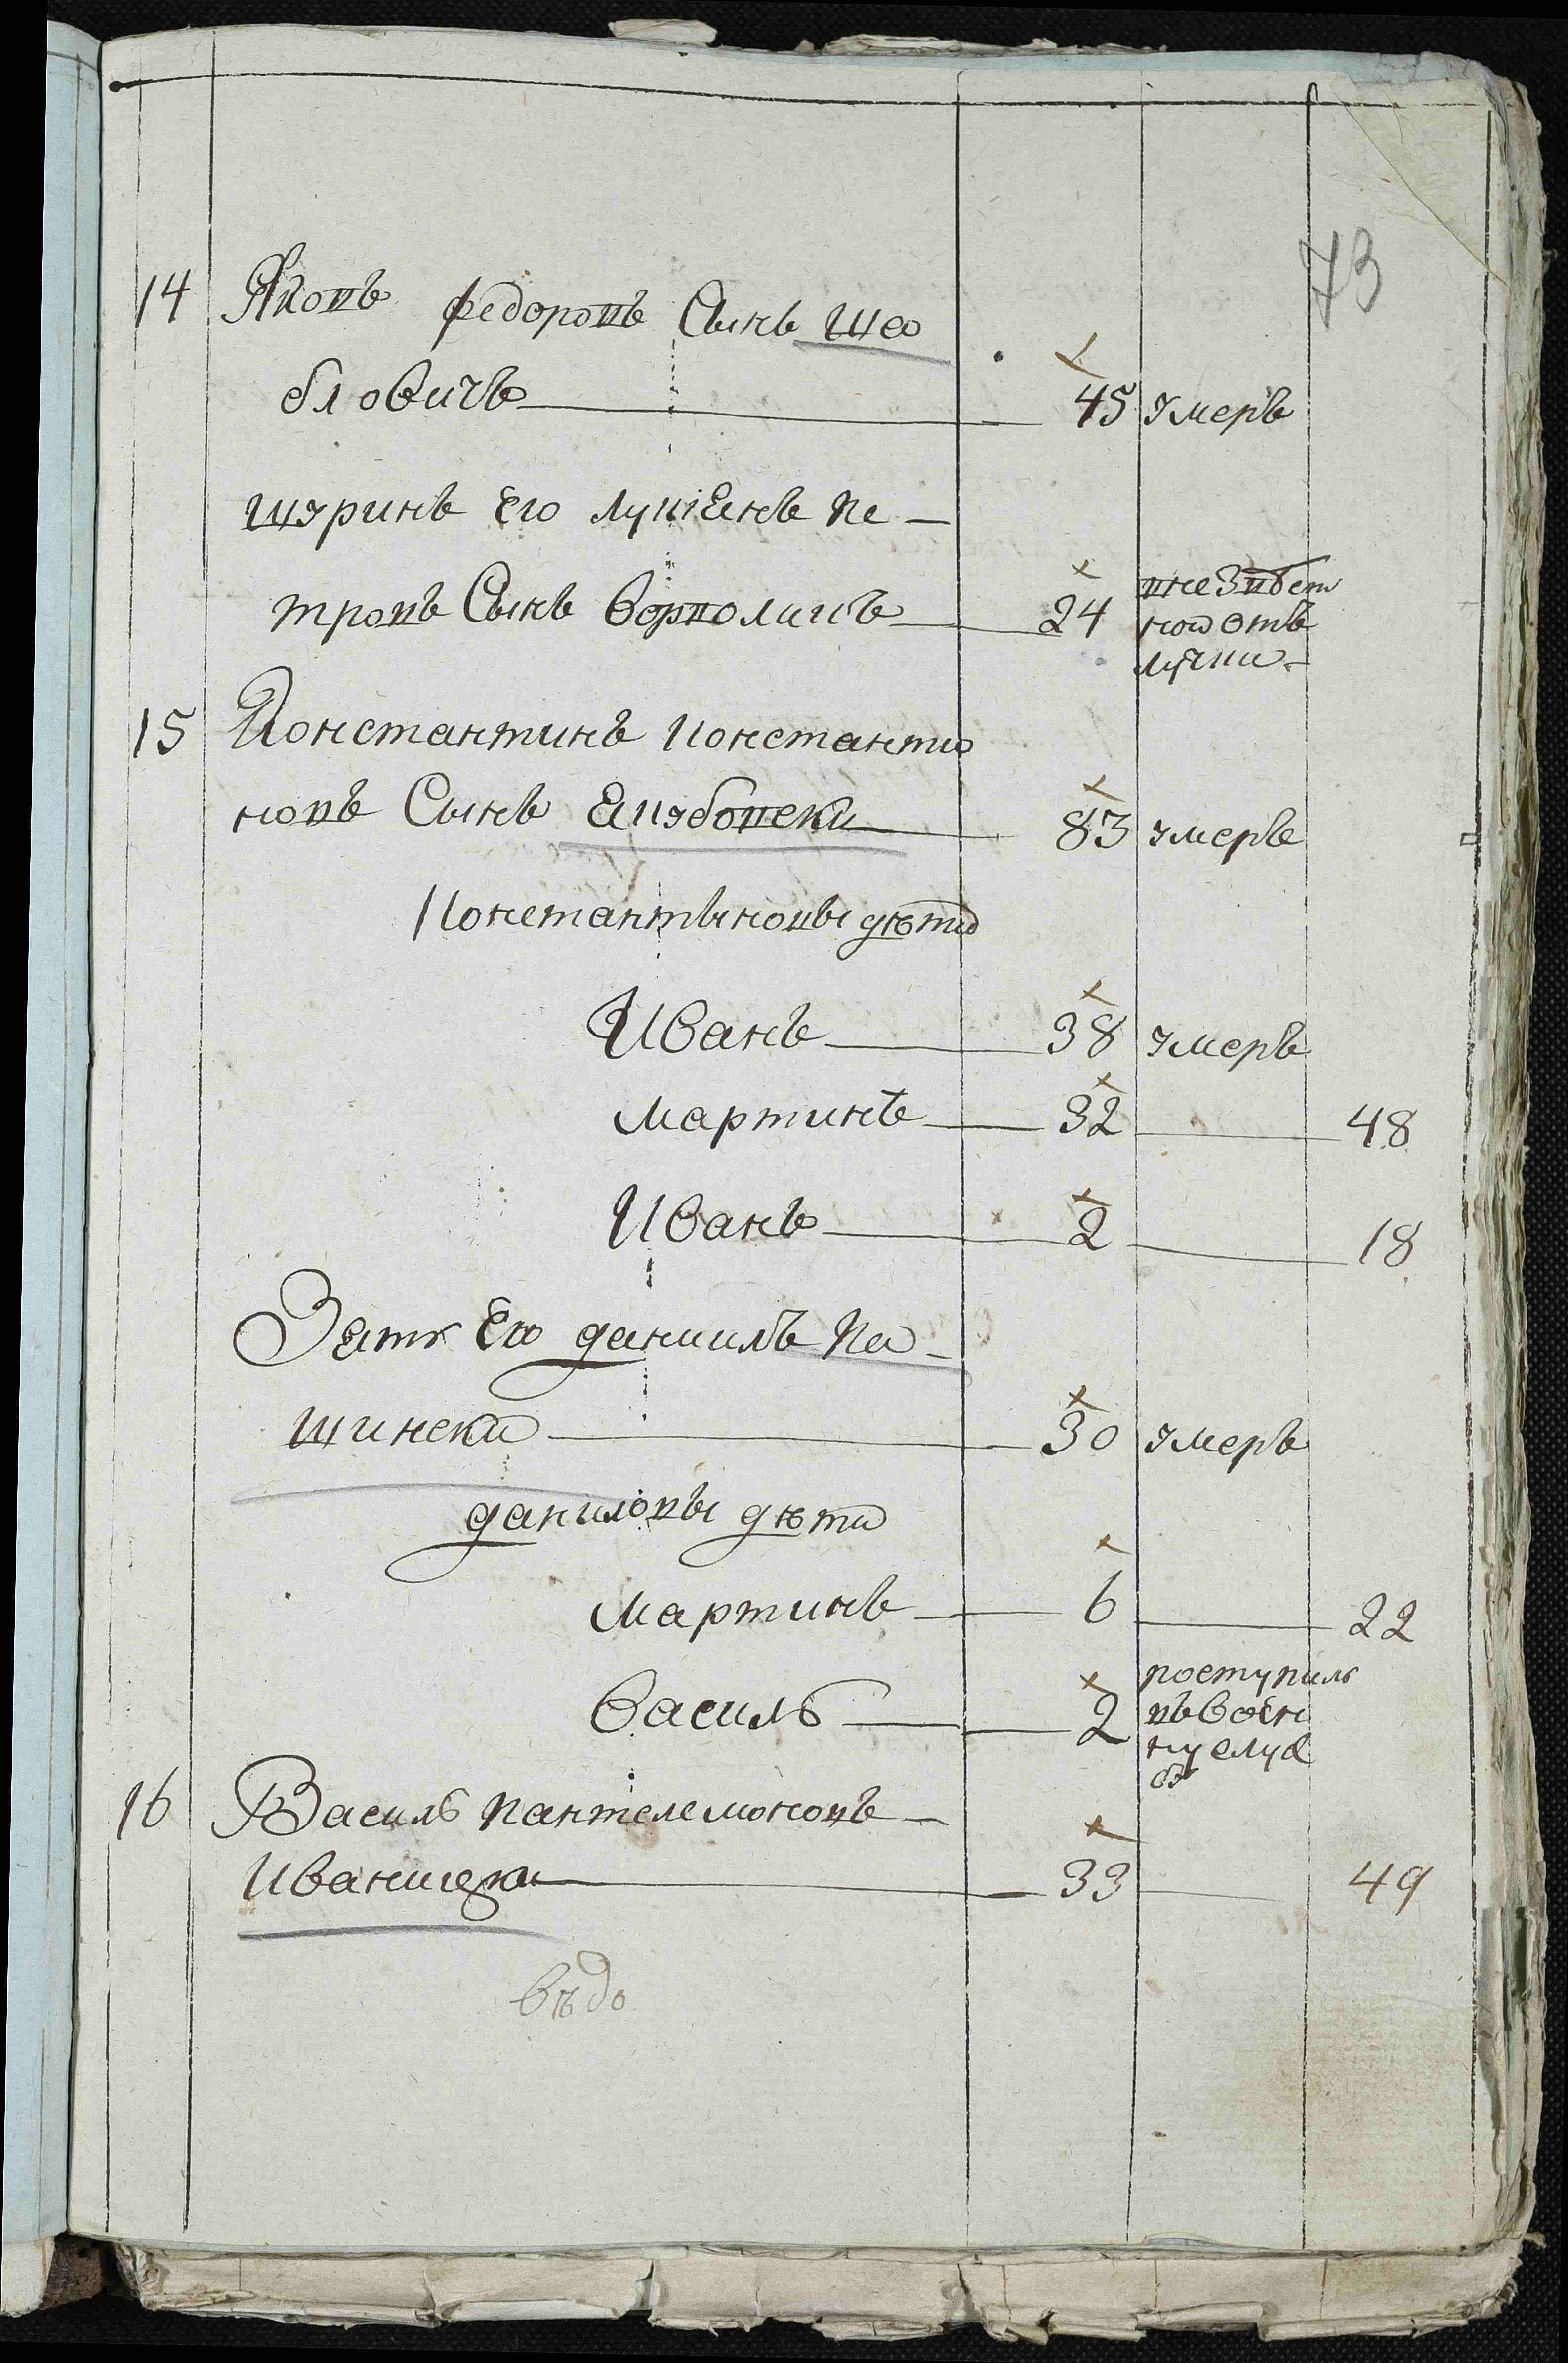 73
14 Яковъ Федоровъ Сынъ Ша
бловичъ 45 умеръ
шуринъ Его Лукіенъ Пе-
тровъ Сынъ 24 въ неизвест
ной отъ
лучки-
15 Константинъ Константи
новъ Сынъ 83 умеръ
Константыновы дѣти
Иванъ 38 умеръ
Мартинъ 32 48
Иванъ 2 18
Зять Его Даниилъ Па-
шински 30 умеръ
Даниловы дѣти
Мартинъ 6 22
Василь 2 поступилъ
въ воен
ну служ
бу
16 Василь Пантелемоновъ-
33 49
вѣдо